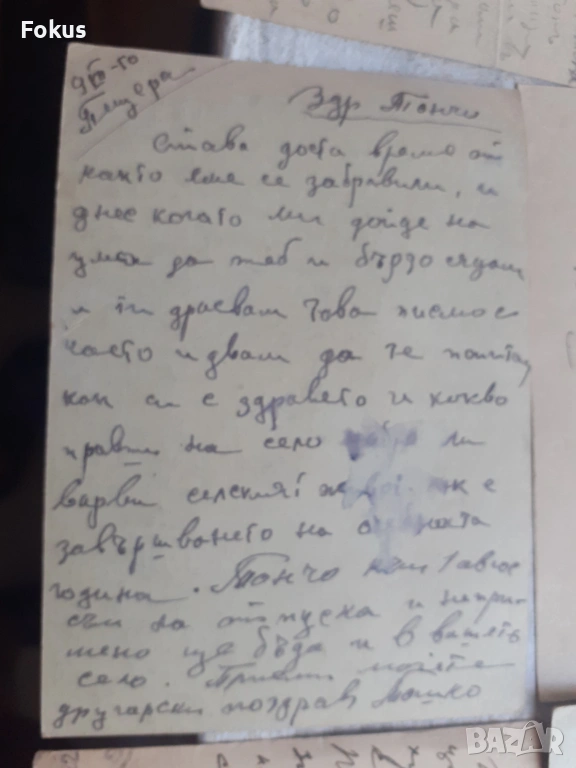 Fokus
Пещера
Здр Тончо
Става доста време от
както сме се забравили, и
днес когато ми дойде на
ума за теб и бързо сядам
и ти драсвам това писмо с
което идвам да те попитам
как си с здравето и какво
правиш на село ли
върви селският
завършването на
година. Тончо към 1 август
съм на отпуска и непре-
мено ще бъда и в вашето
село. Приеми моите
другарски поздрав Пашко
BAZAR